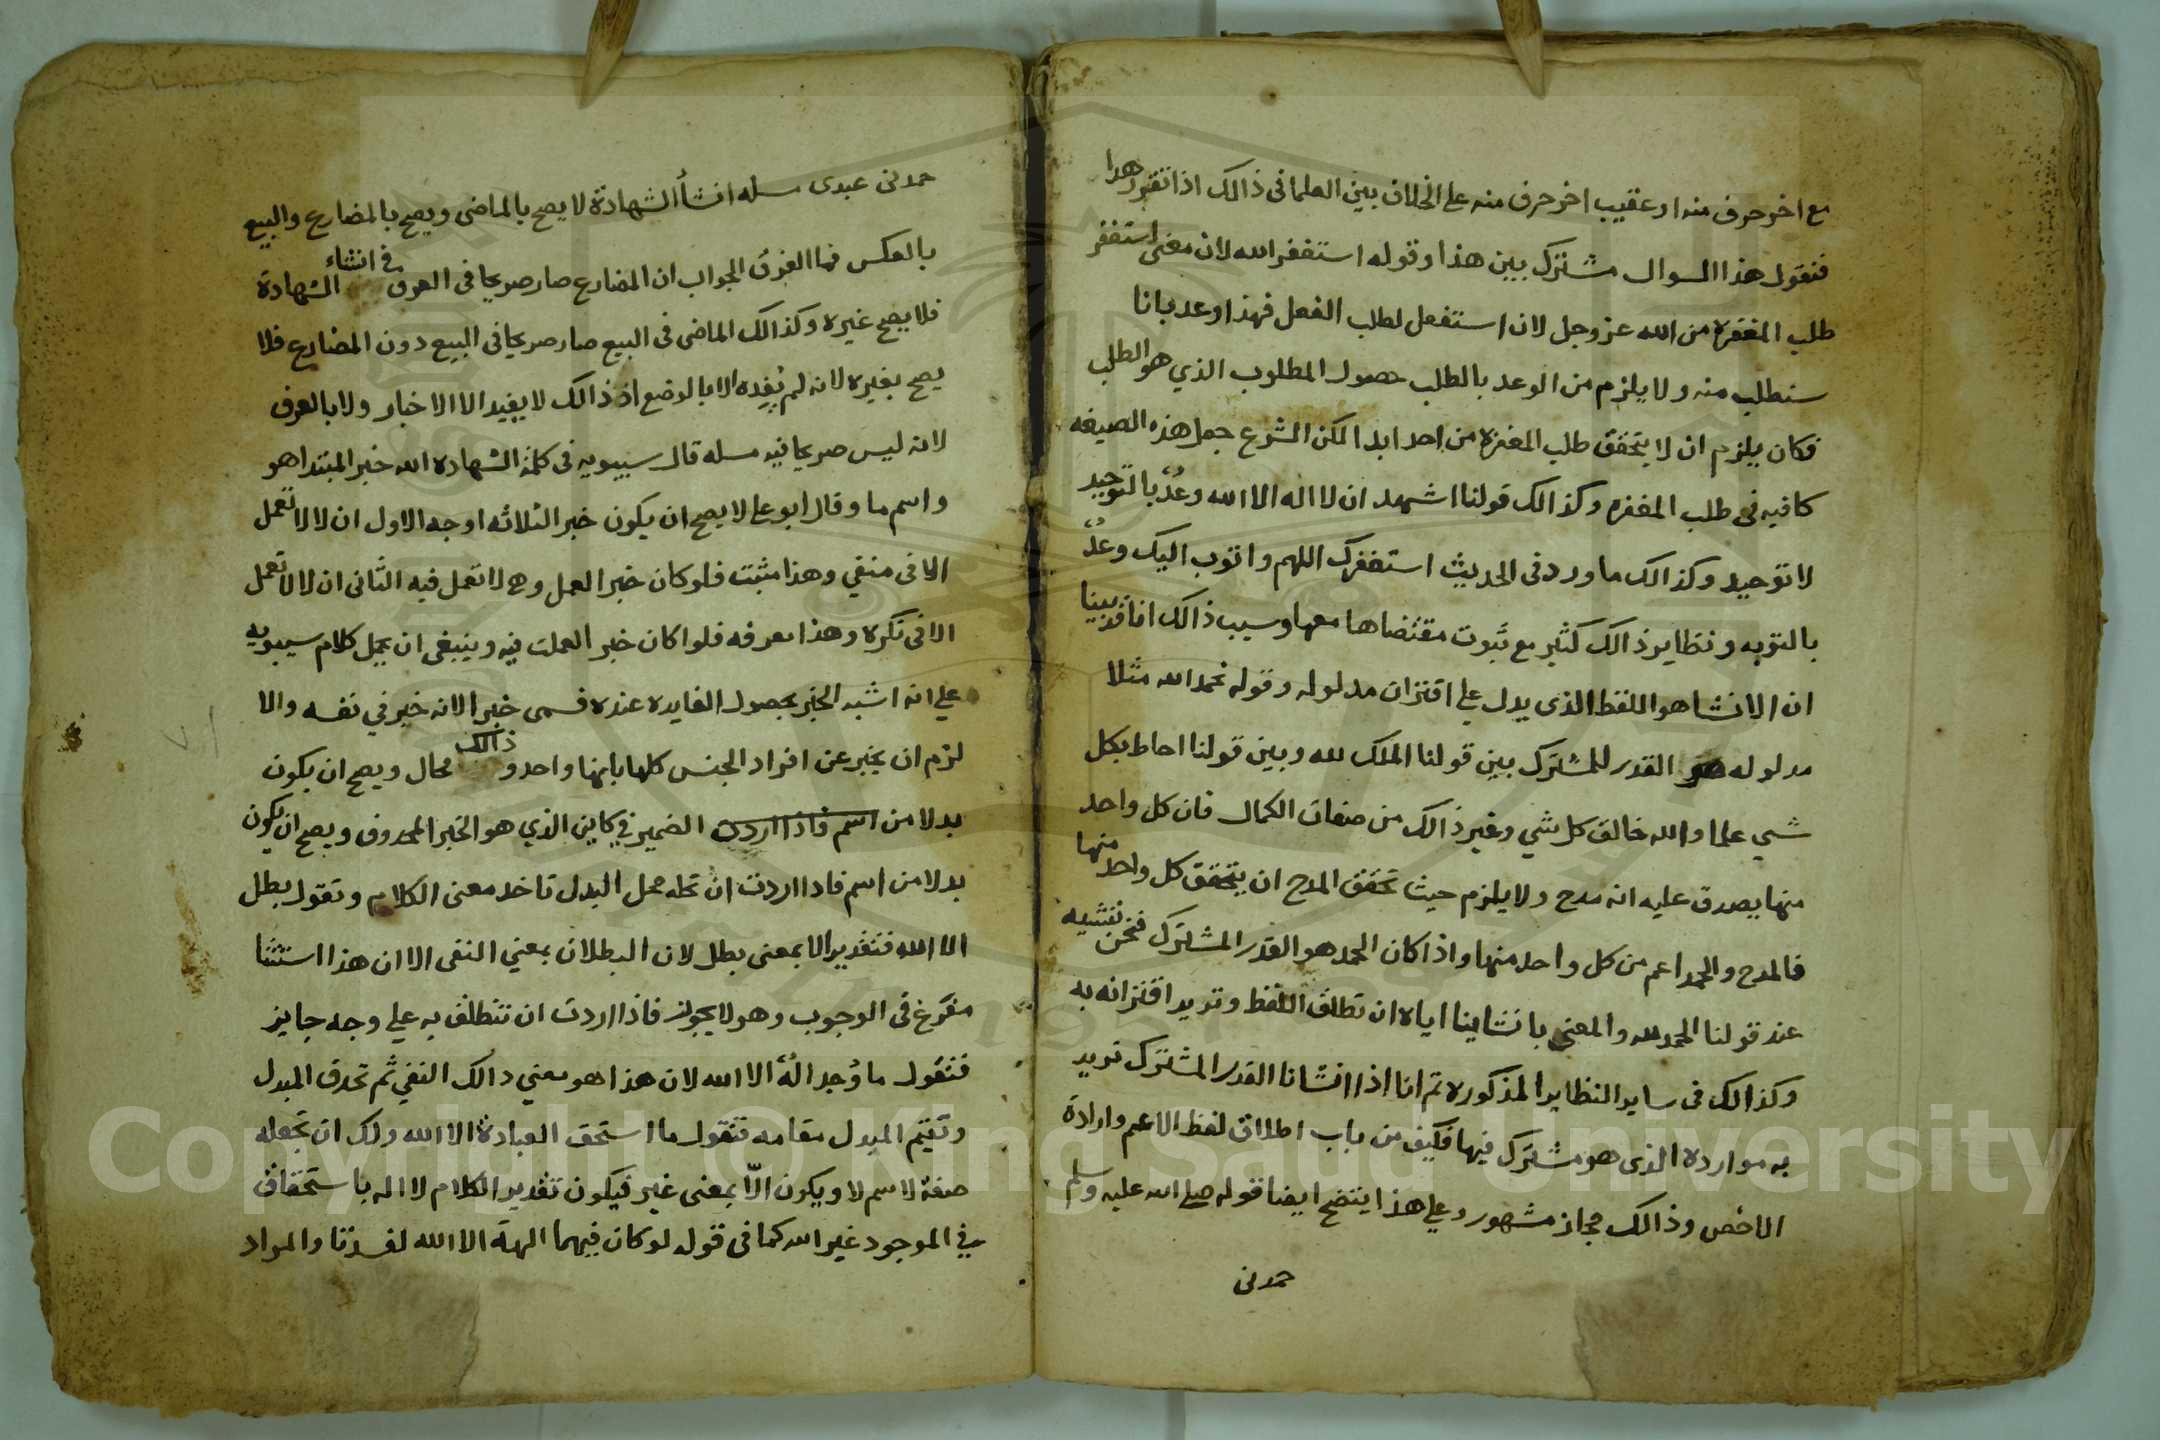 مع اخر حرف منه او عقيب اخر حرف منه على الخلاف بين العلما فى ذالك اذا تقرر هدا
فنقول هذا السوال مشترك بين هذا وقوله استغفر الله لان معنى استغفر
طلب المغفرة من الله عز وجل لان استفعل لطلب الفعل فهذا وعد بانا
سنطلب منه ولا يلزم من الوعد بالطلب حصول المطلوب الذي هو الطلب
فكان يلزم ان لا يتحقق طلب المغفرة من احد ابدا لكن الشرع جعل هذه الصيغه
كافيه فى طلب المغفره وكذالك قولنا اشهد ان لا اله الا الله وعدٌ بالتوحيد
لا توحيد وكذالك ما ورد فى الحديث استغفرك اللهم واتوب اليك وعدٌ
بالتوبه ونظاير ذالك كثير مع ثبوت مقتضاها معها وسبب ذالك انا قد بينا
ان الانشا هو اللفظ الذى يدل على اقتران مدلوله وقوله نحمد الله مثلا
مدلوله هو القدر المشترك بين قولنا الملك لله وبين قولنا احاط بكل
شي علما والله خالق كل شي وغير ذالك من صفات الكمال فان كل واحد
منها يصدق عليه انه مدح ولا يلزم حيث تحقق المدح ان يتحقق كل واحد منها
فالمدح والحمد اعم من كل واحد منها واذا كان الحمد هو القدر المشترك فنحن ننشيه
عند قولنا الحمد لله والمعنى بانشاينا اياه ان نطلق اللفظ ونريد اقترانه به
وكذالك فى ساير النظاير المذكوره ثم انا اذا انشانا القدر المشترك نريد
به موارده الذى هو مشترك فيها فكيف من باب اطلاق لفظ الاعم وارادة
الاخص وذالك مجاز مشهور وعلى هذا يتضح ايضا قوله صلى الله عليه وسلم
حمدنى
حمدنى عبدى مسله انشأ الشهادة لا يصح بالماضى ويصح بالمضارع والبيع
بالعكس فما الفرق الجواب ان المضارع صار صريحا فى العرف فى انشاء الشهادة
فلا يصح غيره وكذالك الماضى فى البيع صار صريحا فى البيع دون المضارع فلا
يصح بغيره لانه لم يُفِده الا بالوضع اذ ذالك لا يفيد الا الاخبار ولا بالعرف
لانه ليس صريحا فيه مسله قال سيبويه فى كلمة الشهاده الله خبر المبتدا هو
واسم ما وقال ابو على لا يصح ان يكون خبر الثلاثه اوجه الاول ان لا لا تعمل
الا فى منفي وهذا مثبت فلو كان خبر العمل وهى لا تعمل فيه الثانى ان لا لا تعمل
الا فى نكره وهذا معرفه فلوا كان خبر العملت فيه وينبغى ان يحمل كلام سيبويه
على انه اشبه الخبر بحصول الفايده عنده فسمى خبر الا انه خبر في نفسه والا
لزم ان يخبر عن افراد الجنس كلها بانها واحد وذالك محال ويصح ان يكون
بدلا من اسم فاذا اردت الضمير في كاين الذي هو الخبر المحدوف ويصح ان يكون
بدلا من اسم فاذا اردت ان تحله محل البدل تاخد معنى الكلام وتقول بطل
الا الله فتقدير الا بمعنى بطل لان البطلان بمعني النفى الا ان هذا استثنا
مفرغ فى الوجوب وهو لا يجوز فاذا اردت ان تنطلق به على وجه جايز
فتقول ما وُجد الهٌ الا الله لان هذا هو معني دالك النفي ثم تحدف المبدل
وتقيم المبدل مقامه فتقول ما استحق العبادة الا الله ولك ان تجعله
صفة لاسم لا ويكون الّا بمعنى غير فيكون تقدير الكلام لا اله باستحقاق
في الموجود غير الله كما فى قوله لو كان فيهما الهة الا الله لفسدتا والمراد
Copyright © King Saud University